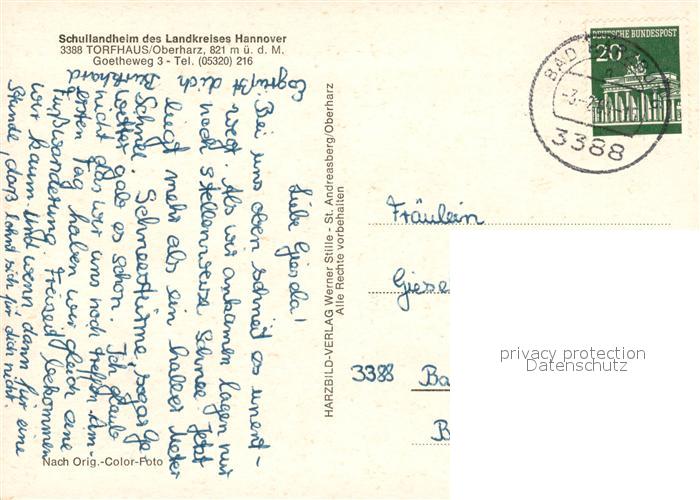 Schullandheim des Landkreises Hannover
3388 TORFHAUS/Oberharz, 821 m ü. d. M.
Goetheweg 3 - Tel. (05320) 216
Liebe Gisela!
Bei uns oben schneit es unent-
wegt. Als wir ankamen lagen nur
noch stellenweise Schnee. Jetzt
liegt mehr als ein halber Meter
Schnee. Schneestürme, sogar Ge
witter gab es schon. Ich glaube
nicht das wir uns noch treffen. Am
ersten Tag haben wir gleich eine
Fußwanderung. Freizeit bekommen
wir kaum und wenn dann für eine
Stunde, daß lohnt sich für dich nicht.
Es grüßt dich
Burkhard
Nach Orig.-Color-Foto
HARZBILD-VERLAG Werner Stille - St. Andreasberg/Oberharz
Alle Rechte vorbehalten
DEUTSCHE BUNDESPOST
20
BAD
3388
Fräulein
Gisel
3388 Ba
privacy protection
Datenschutz